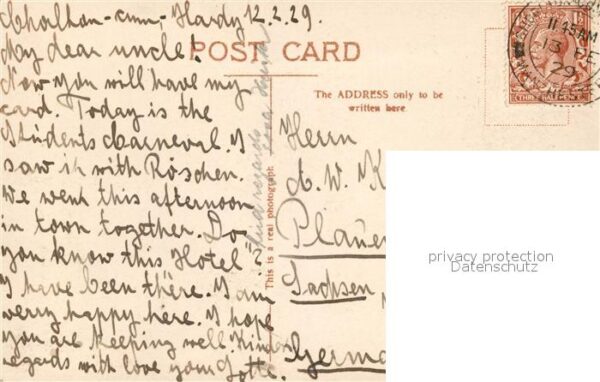 Chorlton-cum-Hardy 12.2.29.
My dear uncle!
Now you will have my
card. Today is the
Students Carneval. I
saw it with Röschen.
We went this afternoon
in town together. Do
you know this "Hotel"?
I have been there. I am
verry happy here. I hope
you are keeping well. Kinder
regards with love your Lotte.
POST CARD
The ADDRESS only to be
written here
This is a real photograph
Kind regards
Herrn
A. W. K
Plauen
Sachsen
Germa
11 45 AM
13 FE
29
THREE HALFPENCE
privacy protection
Datenschutz